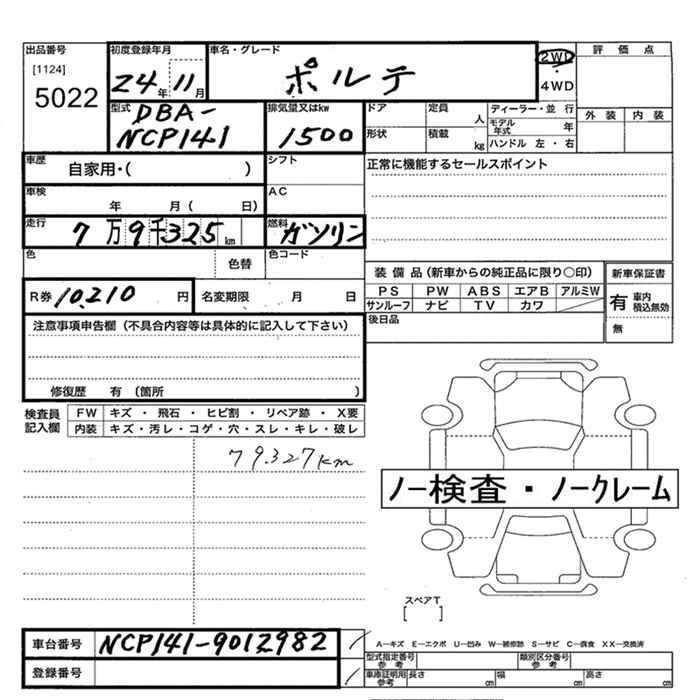 出品番号 初度登録年月 車名・グレード 2WD 評価点
[1124] 5022 24年11月 ポルテ ・ 4WD 外装 内装
型式 DBA-NCP141 排気量又はkw 1500 ドア 定員 人 ディーラー・並行
形状 積載 kg モデル年式 年
ハンドル 左・右
車歴 自家用・( ) シフト 正常に機能するセールスポイント
車検 年 月( 日) AC
走行 7万9千325km 燃料 ガソリン
色 色替 色コード
装備品(新車からの純正品に限り○印) 新車保証書
PS PW ABS エアB アルミW 有 車内積込無効
サンルーフ ナビ TV カワ 無
R券 10,210円 名変期限 月 日 後日品
注意事項申告欄(不具合内容等は具体的に記入して下さい)
修復歴 有(箇所 )
検査員記入欄 FW キズ・飛石・ヒビ割・リペア跡・X要
内装 キズ・汚レ・コゲ・穴・スレ・キレ・破レ
79,327km
ノー検査・ノークレーム
スペアT
[ ]
車台番号 NCP141-9012982
登録番号
A―キズ E―エクボ U―凹み W―被修跡 S―サビ C―腐食 XX―交換済
型式指定番号 参考 類別区分番号 参考
車庫証明用 参考 長さ cm 幅 cm 高さ cm